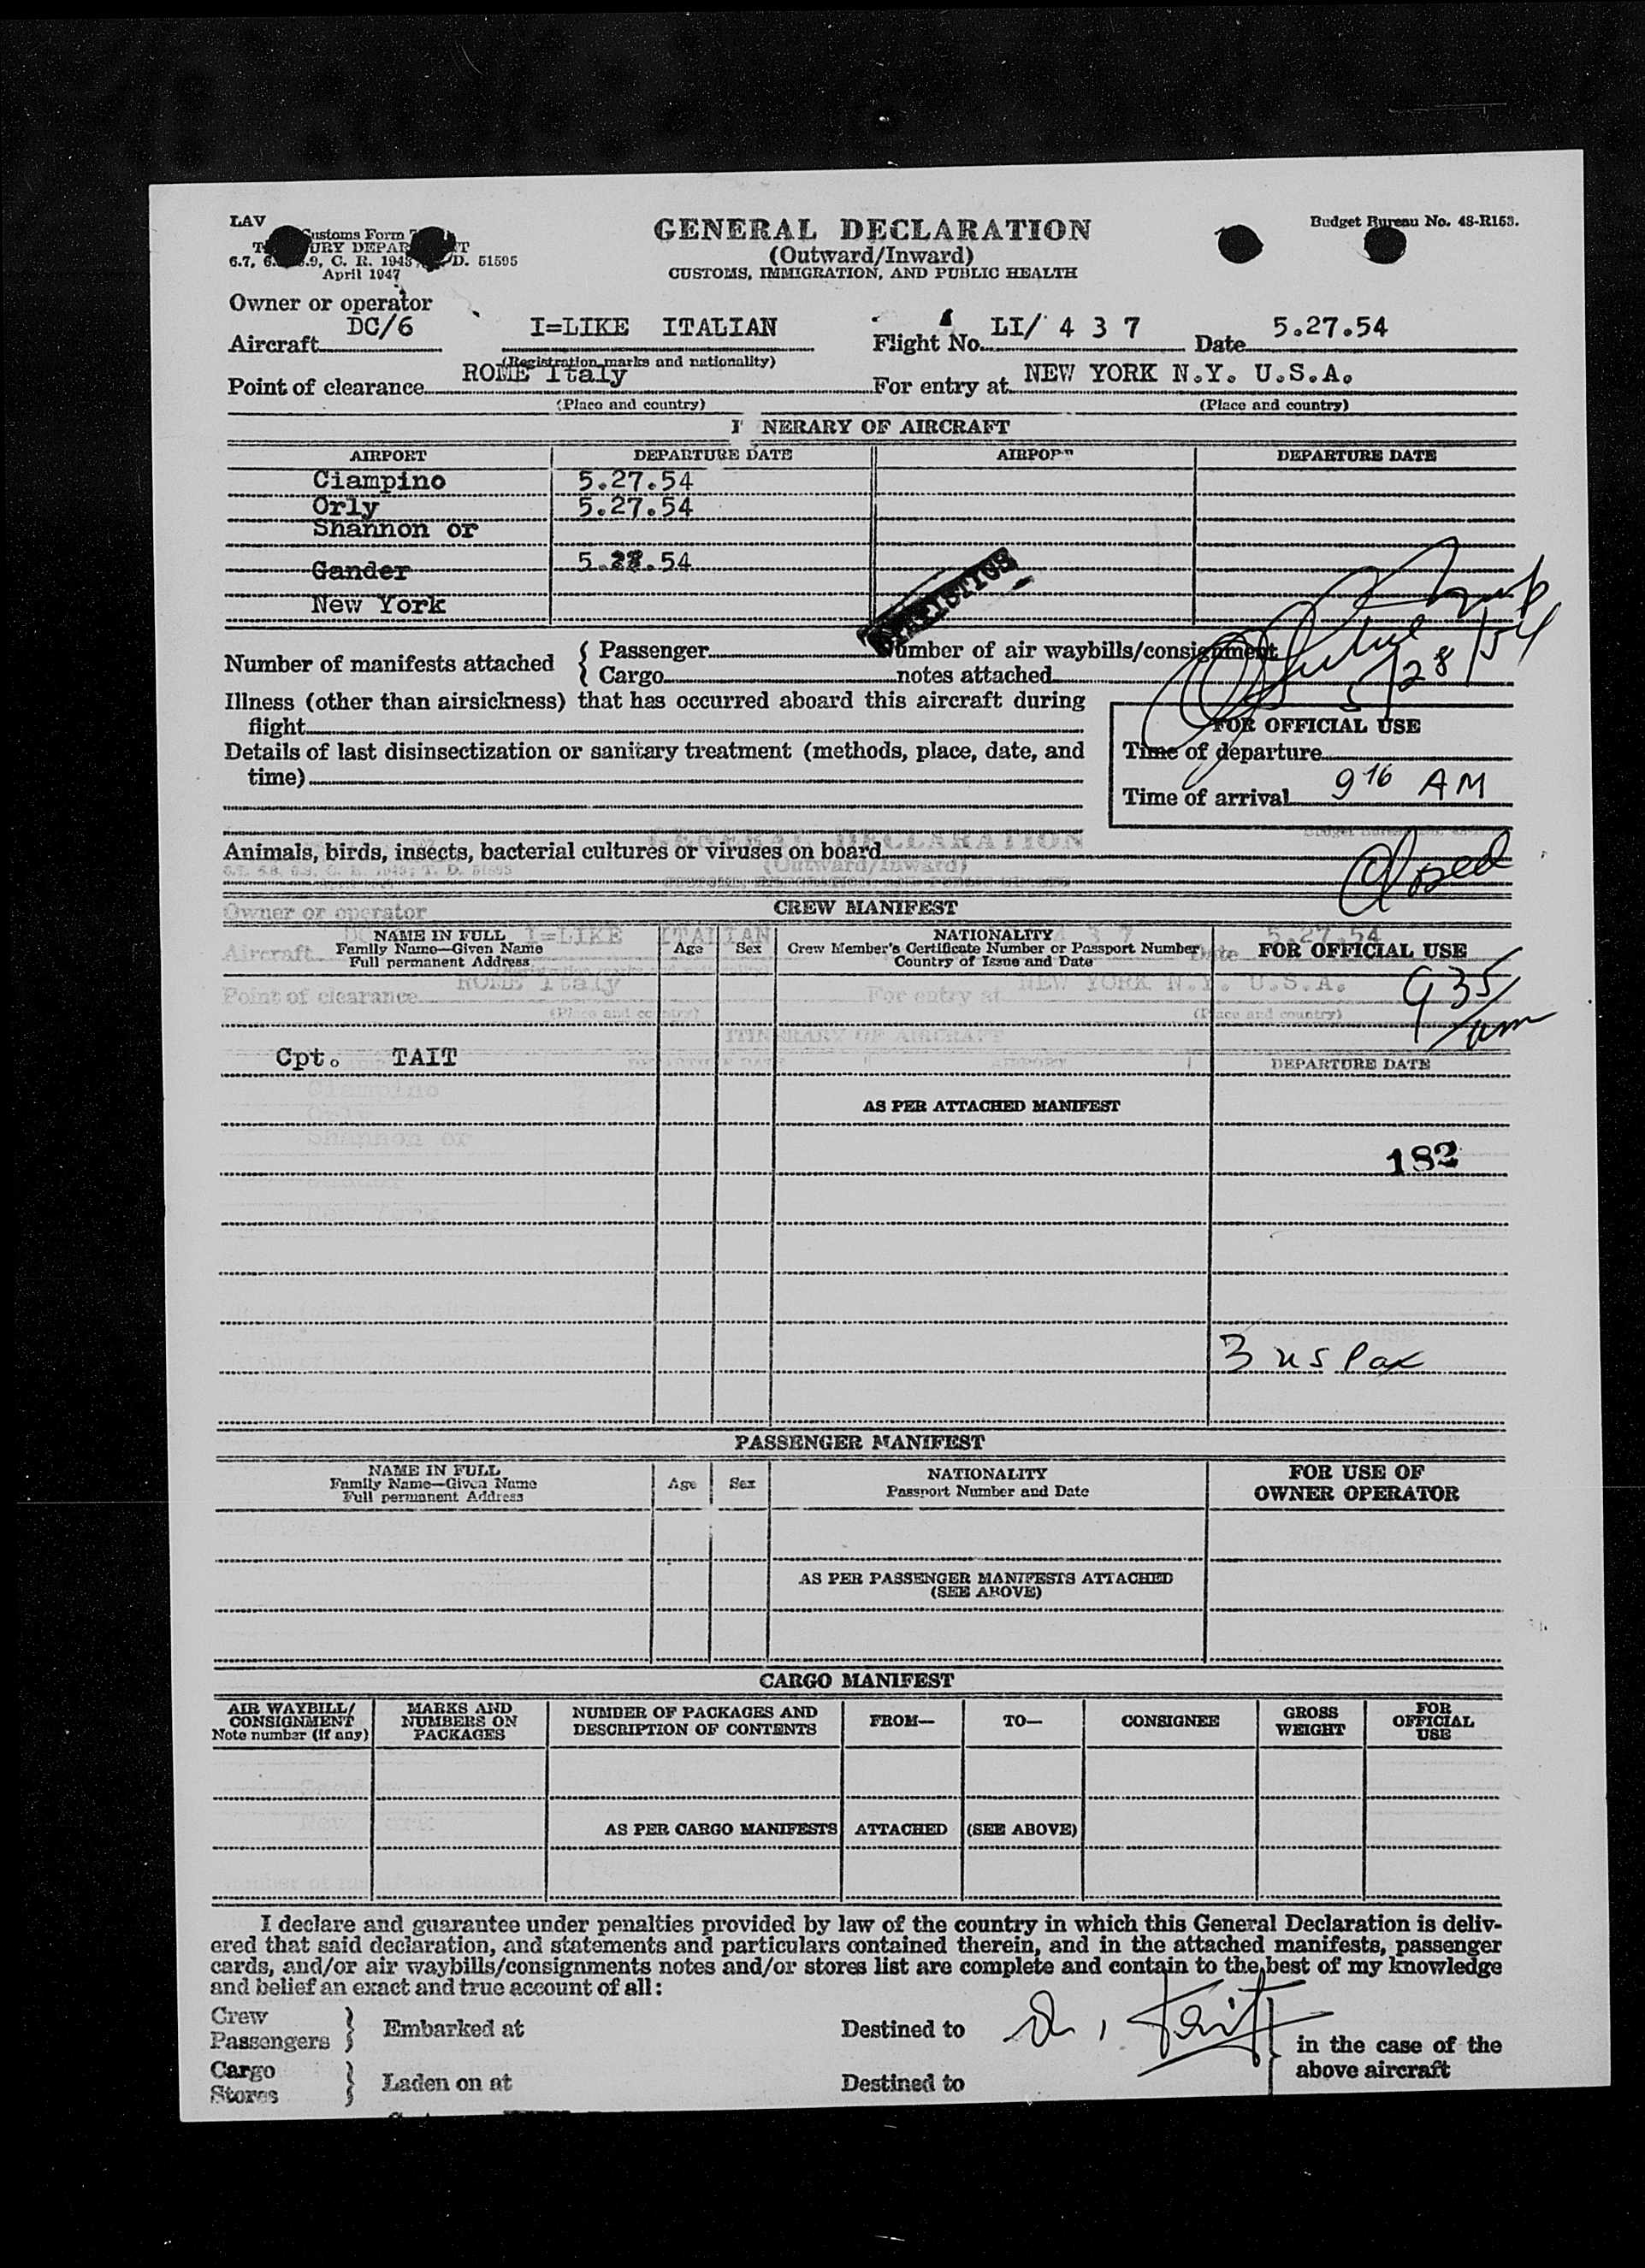 LAV
Customs Form
6.7, C. R. 1943 D. 51595
April 1947
GENERAL DECLARATION
(Outward/Inward)
CUSTOMS, IMMIGRATION, AND PUBLIC HEALTH
Budget Bureau No. 48-R153.
Owner or operator
Aircraft DC/6 I=LIKE ITALIAN Flight No. LI/ 4 3 7 Date 5.27.54
(Registration marks and nationality)
Point of clearance ROME Italy For entry at NEW YORK N.Y. U.S.A.
(Place and country) (Place and country)
NERARY OF AIRCRAFT
AIRPORT DEPARTURE DATE AIRPOR DEPARTURE DATE
Ciampino 5.27.54
Orly 5.27.54
Shannon or
Gander 5.28.54
New York
STATISTICS
Number of manifests attached { Passenger
Cargo
Number of air waybills/consignment
notes attached
5/28/54
Illness (other than airsickness) that has occurred aboard this aircraft during
flight
Details of last disinsectization or sanitary treatment (methods, place, date, and
time)
FOR OFFICIAL USE
Time of departure
Time of arrival 9 16 AM
Animals, birds, insects, bacterial cultures or viruses on board
Closed
CREW MANIFEST
NAME IN FULL
Family Name—Given Name
Full permanent Address
Age Sex
NATIONALITY
Crew Member's Certificate Number or Passport Number
Country of Issue and Date
FOR OFFICIAL USE
9 35/am
Cpt. TAIT
DEPARTURE DATE
AS PER ATTACHED MANIFEST
182
3 US Pax
PASSENGER MANIFEST
NAME IN FULL
Family Name—Given Name
Full permanent Address
Age Sex
NATIONALITY
Passport Number and Date
FOR USE OF
OWNER OPERATOR
AS PER PASSENGER MANIFESTS ATTACHED
(SEE ABOVE)
CARGO MANIFEST
AIR WAYBILL/
CONSIGNMENT
Note number (if any)
MARKS AND
NUMBERS ON
PACKAGES
NUMBER OF PACKAGES AND
DESCRIPTION OF CONTENTS
FROM— TO— CONSIGNEE
GROSS
WEIGHT
FOR
OFFICIAL
USE
AS PER CARGO MANIFESTS ATTACHED (SEE ABOVE)
I declare and guarantee under penalties provided by law of the country in which this General Declaration is deliv-
ered that said declaration, and statements and particulars contained therein, and in the attached manifests, passenger
cards, and/or air waybills/consignments notes and/or stores list are complete and contain to the best of my knowledge
and belief an exact and true account of all:
Crew
Passengers } Embarked at Destined to
Cargo
Stores } Laden on at Destined to
in the case of the
above aircraft
Tait